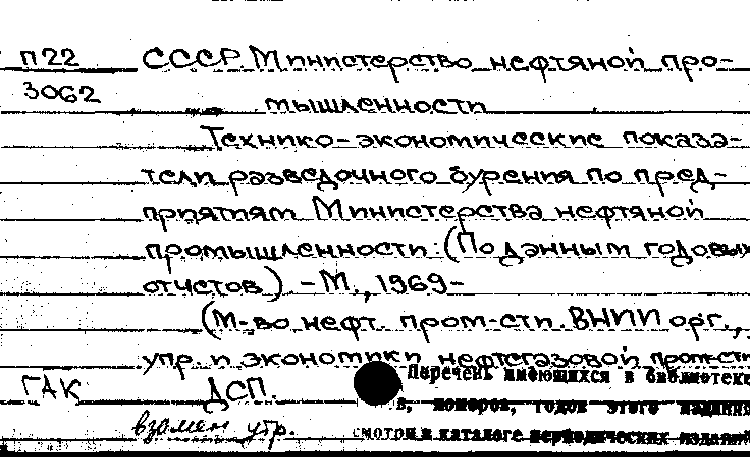 П22 СССР. Министерство нефтяной про-
3062 мышленности
Технико-экономические показа-
тели разведочного бурения по пред-
приятиям Министерства нефтяной
промышленности. (По данным годовых
отчетов). – М., 1969 –
(М-во нефт. пром-сти. ВНИИ орг.,
упр. и экономики нефтегазовой пром-сти
ГАК ДСП. Перечень имеющихся в библиотеке
взамен утр. номеров, годов этого издания
смотри в каталоге периодических изданий